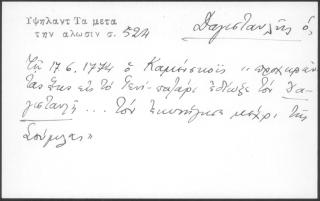 Υψηλαντ Τα μετα
την αλωσιν σ. 524
Δαγιστανλῆς ὁ,
Τῇ 17.6.1774 ὁ Καμένσκοϊ "προχωρήσας
εἰς τὸ Γενί-παζάρι ἐδίωξε τὸν Δα-
γιστανλῆ ... τὸν ἐκυνήγησε μέχρι τῆς
Σούμλας"